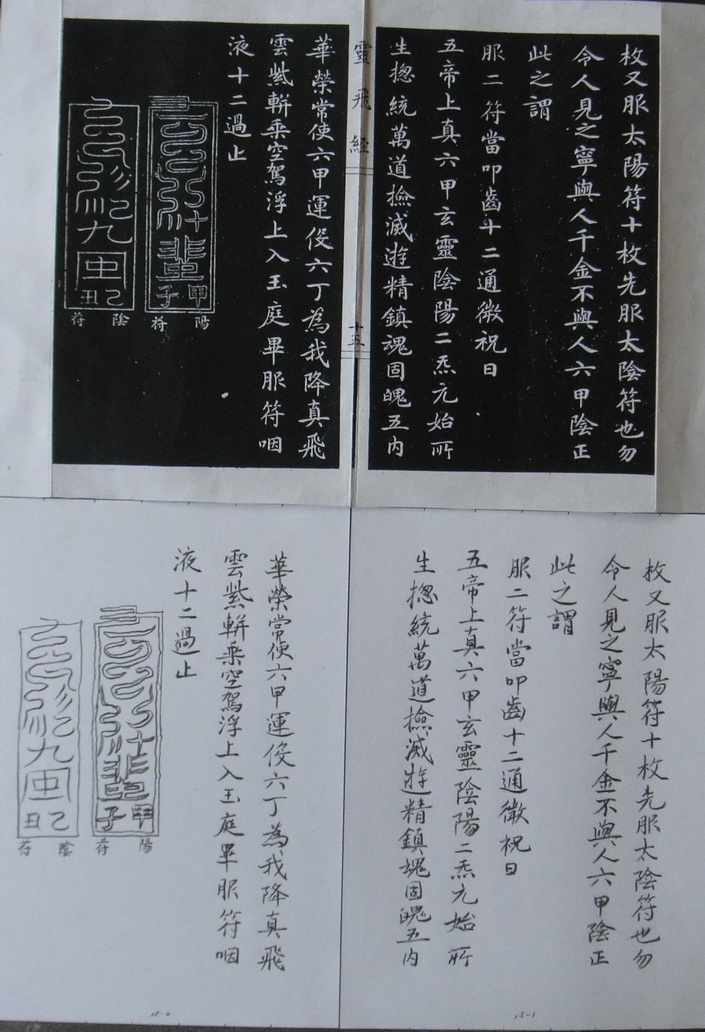 枚又服太陽符十枚先服太陰符也勿
令人見之寧與人千金不與人六甲陰正
此之謂
服二符當叩齒十二通微祝曰
五帝上真六甲玄靈陰陽二炁元始所
生揔統萬道撿滅遊精鎮魂固魄五內
靈飛經
十五
華榮常使六甲運役六丁為我降真飛
雲紫軿乘空駕浮上入玉庭畢服符咽
液十二過止
甲子
陽符
乙丑
陰符
枚又服太陽符十枚先服太陰符也勿
令人見之寧與人千金不與人六甲陰正
此之謂
服二符當叩齒十二通微祝曰
五帝上真六甲玄靈陰陽二炁元始所
生揔統萬道撿滅遊精鎮魂固魄五內
華榮常使六甲運役六丁為我降真飛
雲紫軿乘空駕浮上入玉庭畢服符咽
液十二過止
甲子
陽符
乙丑
陰符
15-1
15-2